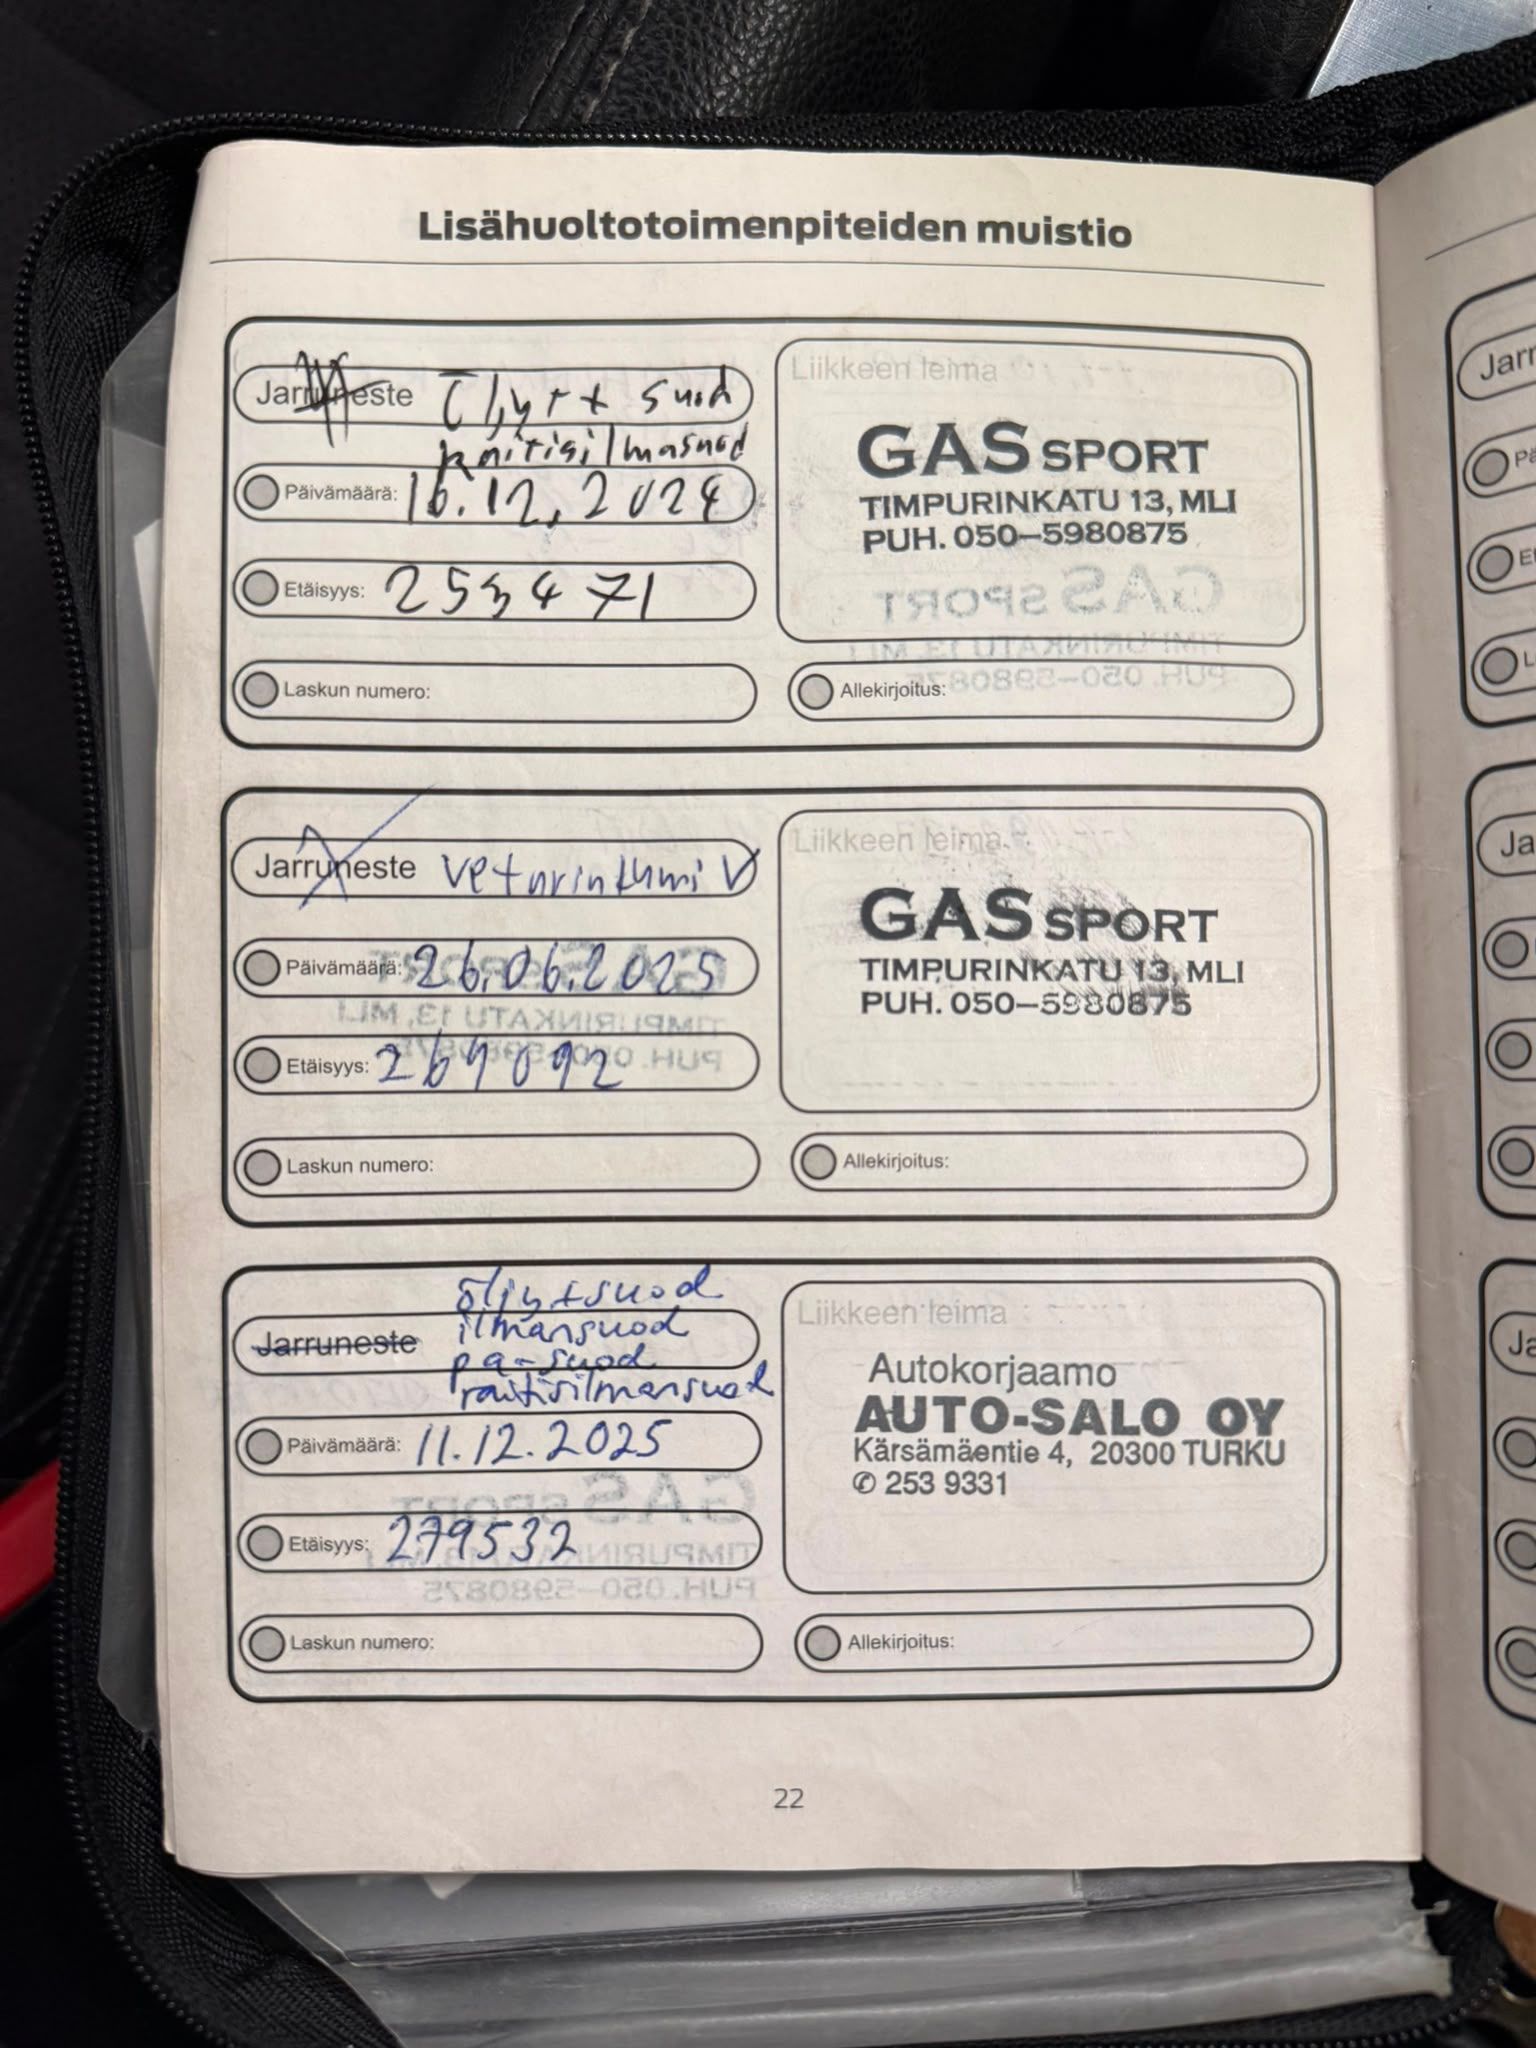 Lisähuoltotoimenpiteiden muistio
Jarruneste Öljyt+suod
raitisilmasuod
Päivämäärä: 16.12.2024
Etäisyys: 253471
Laskun numero:
Liikkeen leima
GAS SPORT
TIMPURINKATU 13, MLI
PUH. 050-5980875
Allekirjoitus:
Jarruneste Veturintumi V
Päivämäärä: 26.06.2025
Etäisyys: 269092
Laskun numero:
Liikkeen leima
GAS SPORT
TIMPURINKATU 13, MLI
PUH. 050-5980875
Allekirjoitus:
öljy+suod
Jarruneste ilmansuod
pa-suod
raitisilmansuod
Päivämäärä: 11.12.2025
Etäisyys: 279532
Laskun numero:
Liikkeen leima
Autokorjaamo
AUTO-SALO OY
Kärsämäentie 4, 20300 TURKU
✆ 253 9331
Allekirjoitus:
22